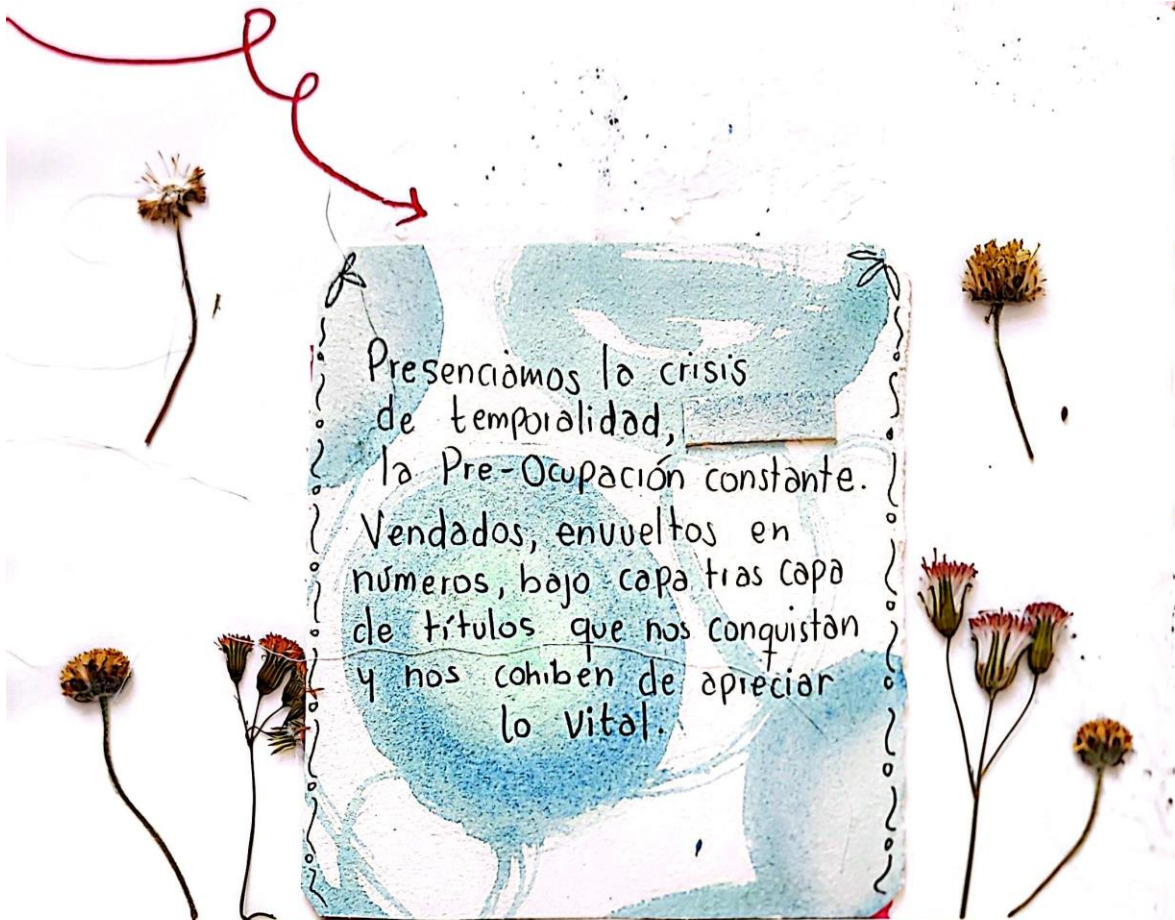 Presenciamos la crisis
de temporalidad,
la Pre-Ocupación constante.
Vendados, envueltos en
números, bajo capa tras capa
de títulos que nos conquistan
y nos cohiben de apreciar
lo vital.